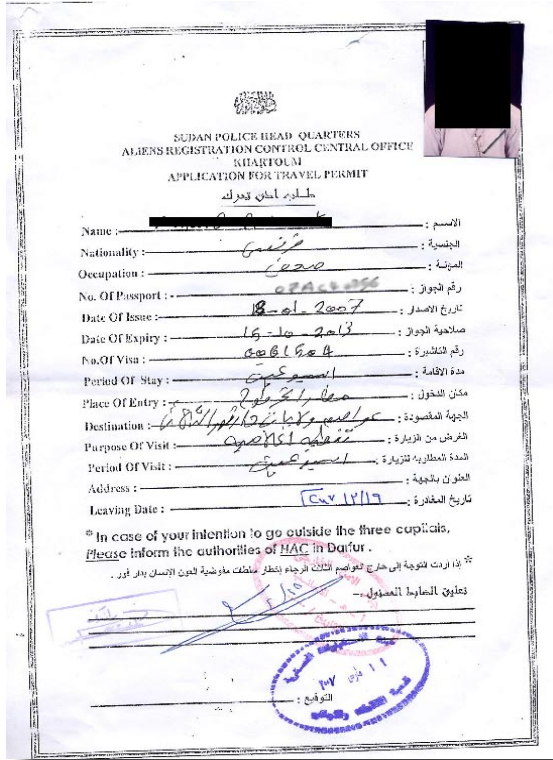 SUDAN POLICE HEAD QUARTERS
ALIENS REGISTRATION CONTROL CENTRAL OFFICE
KHARTOUM
APPLICATION FOR TRAVEL PERMIT
طلب اذن تحرك
Name :- الاسم :
Nationality :- فرنسي الجنسية :
Occupation :- صحفي المهنة :
No. Of Passport :- رقم الجواز :
Date Of Issue :- 18-01-2007 تاريخ الاصدار :
Date Of Expiry :- 15-10-2013 صلاحية الجواز :
No.Of Visa :- رقم التاشيرة :
Period Of Stay :- اسبوعين مدة الاقامة :
Place Of Entry :- مطار الخرطوم مكان الدخول :
Destination :- عواصم ولايات دارفور الثلاث الجهة المقصودة :
Purpose Of Visit :- تغطية اعلامية الغرض من الزيارة :
Period Of Visit :- اسبوعين المدة المطلوبة للزيارة :
Address :- العنوان بالجهة :
Leaving Date :- تاريخ المغادرة :
* In case of your intention to go outside the three capitals,
Please inform the authorities of HAC in Darfur .
* إذا اردت التوجة إلى خارج العواصم الثلاث الرجاء إخطار سلطات مفوضية العون الإنسان بدار فور .
تعليق الضابط المسئول :-
التوقيع :